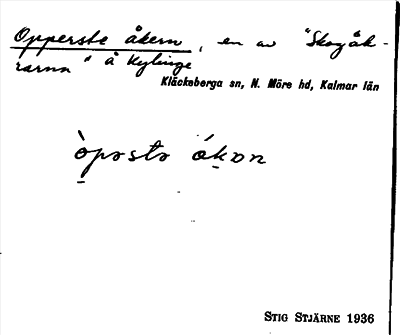 Opperste åkern, en av "Skogåk-
rarna" å Kylinge
Kläckeberga sn, N. Möre hd, Kalmar län
òpəstə ákən
STIG STJÄRNE 1936